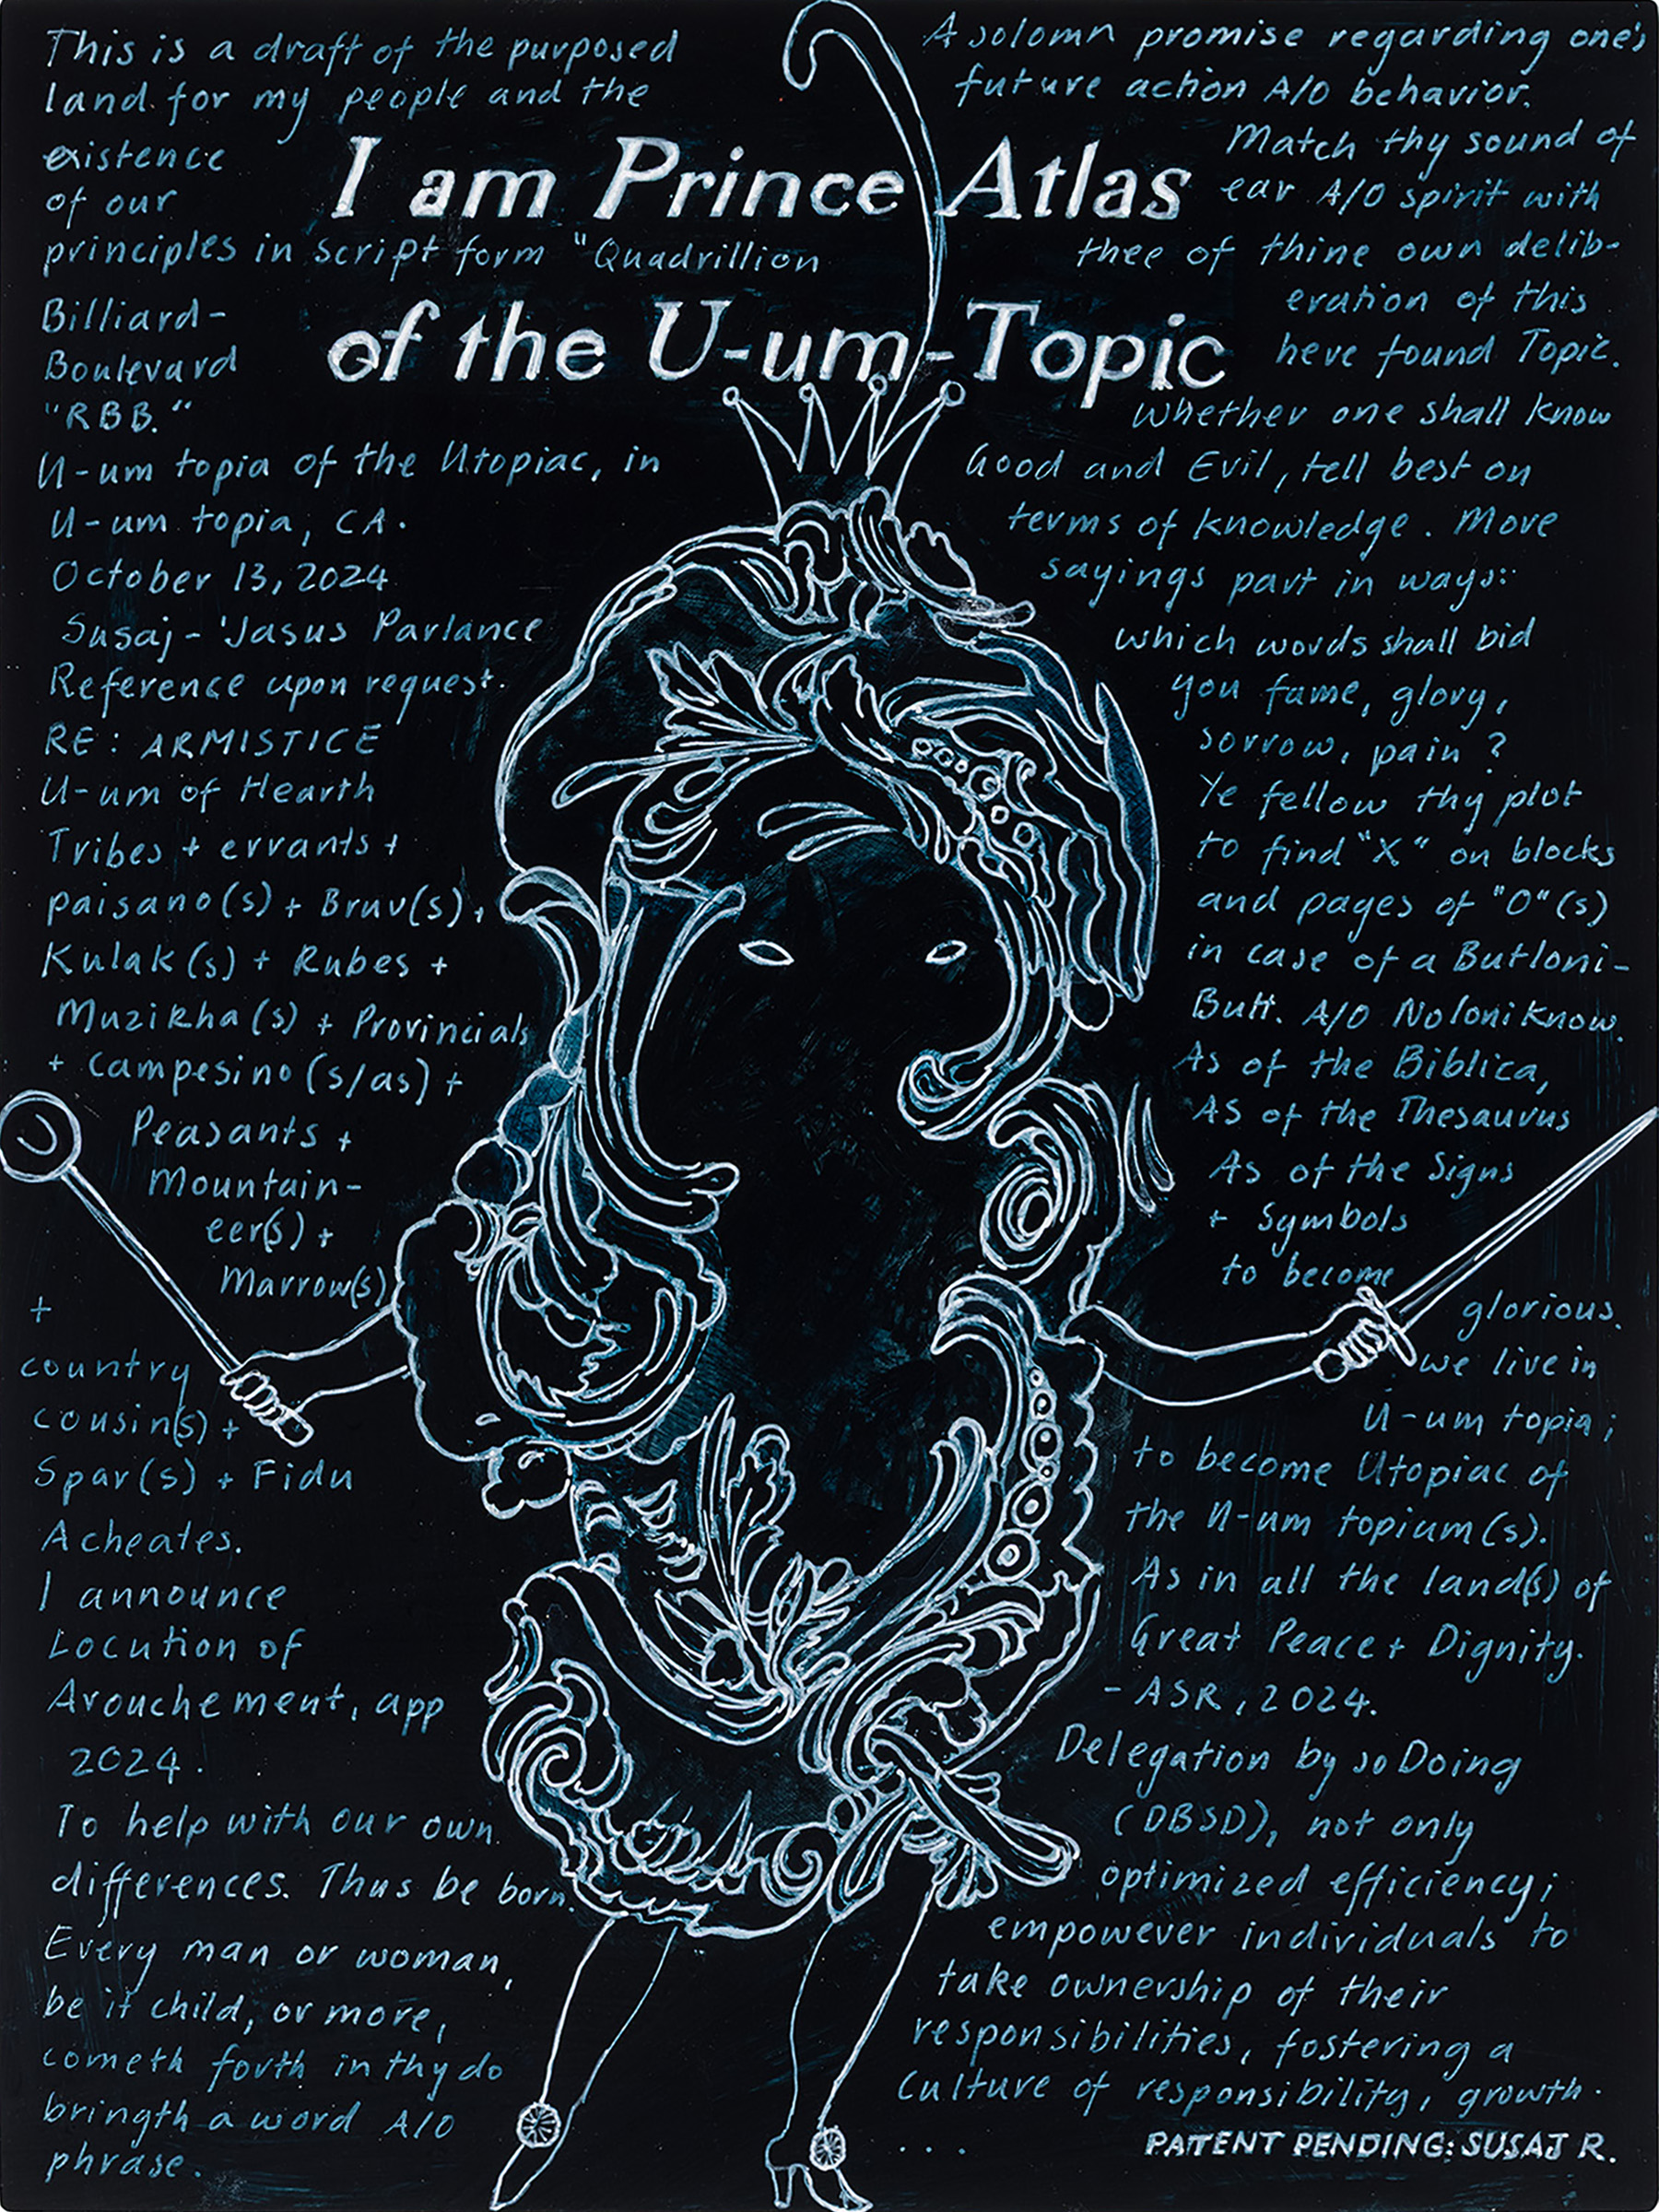 This is a draft of the purposed
land for my people and the
existence
of our
principles in script form "Quadrillion
Billiard-
Boulevard
"RBB."
U-um topia of the Utopiac, in
U-um topia, CA.
October 13, 2024
Susaj-'Jasus Parlance
Reference upon request.
RE: ARMISTICE
U-um of Hearth
Tribes + errants +
paisano(s) + Bruv(s) +
Kulak(s) + Rubes +
Muzikha(s) + Provincials
+ Campesino(s/as) +
Peasants +
Mountain-
eer(s) +
Marrow(s)
+
country
cousin(s) +
Spar(s) + Fidu
Acheates.
I announce
Locution of
Avouchement, app
2024.
To help with our own
differences. Thus be born.
Every man or woman,
be it child, or more,
cometh forth in thy do
bringth a word A/O
phrase.
I am Prince Atlas
of the U-um-Topic
A solomn promise regarding one's
future action A/O behavior.
Match thy sound of
ear A/O spirit with
thee of thine own delib-
eration of this
here found Topic.
Whether one shall know
Good and Evil, tell best on
terms of knowledge. More
sayings part in ways::
which words shall bid
you fame, glory,
sorrow, pain?
Ye fellow thy plot
to find "X" on blocks
and pages of "O"(s)
in case of a Butloni-
Butt. A/O NoloniKnow.
As of the Biblica,
As of the Thesaurus
As of the Signs
+ Symbols
to become
glorious.
we live in
U-um topia;
to become Utopiac of
the U-um topium(s).
As in all the land(s) of
Great Peace + Dignity.
- ASR, 2024.
Delegation by so Doing
(DBSD), not only
optimized efficiency;
empowever individuals to
take ownership of their
responsibilities, fostering a
culture of responsibility, growth.
...
PATENT PENDING: SUSAJ R.